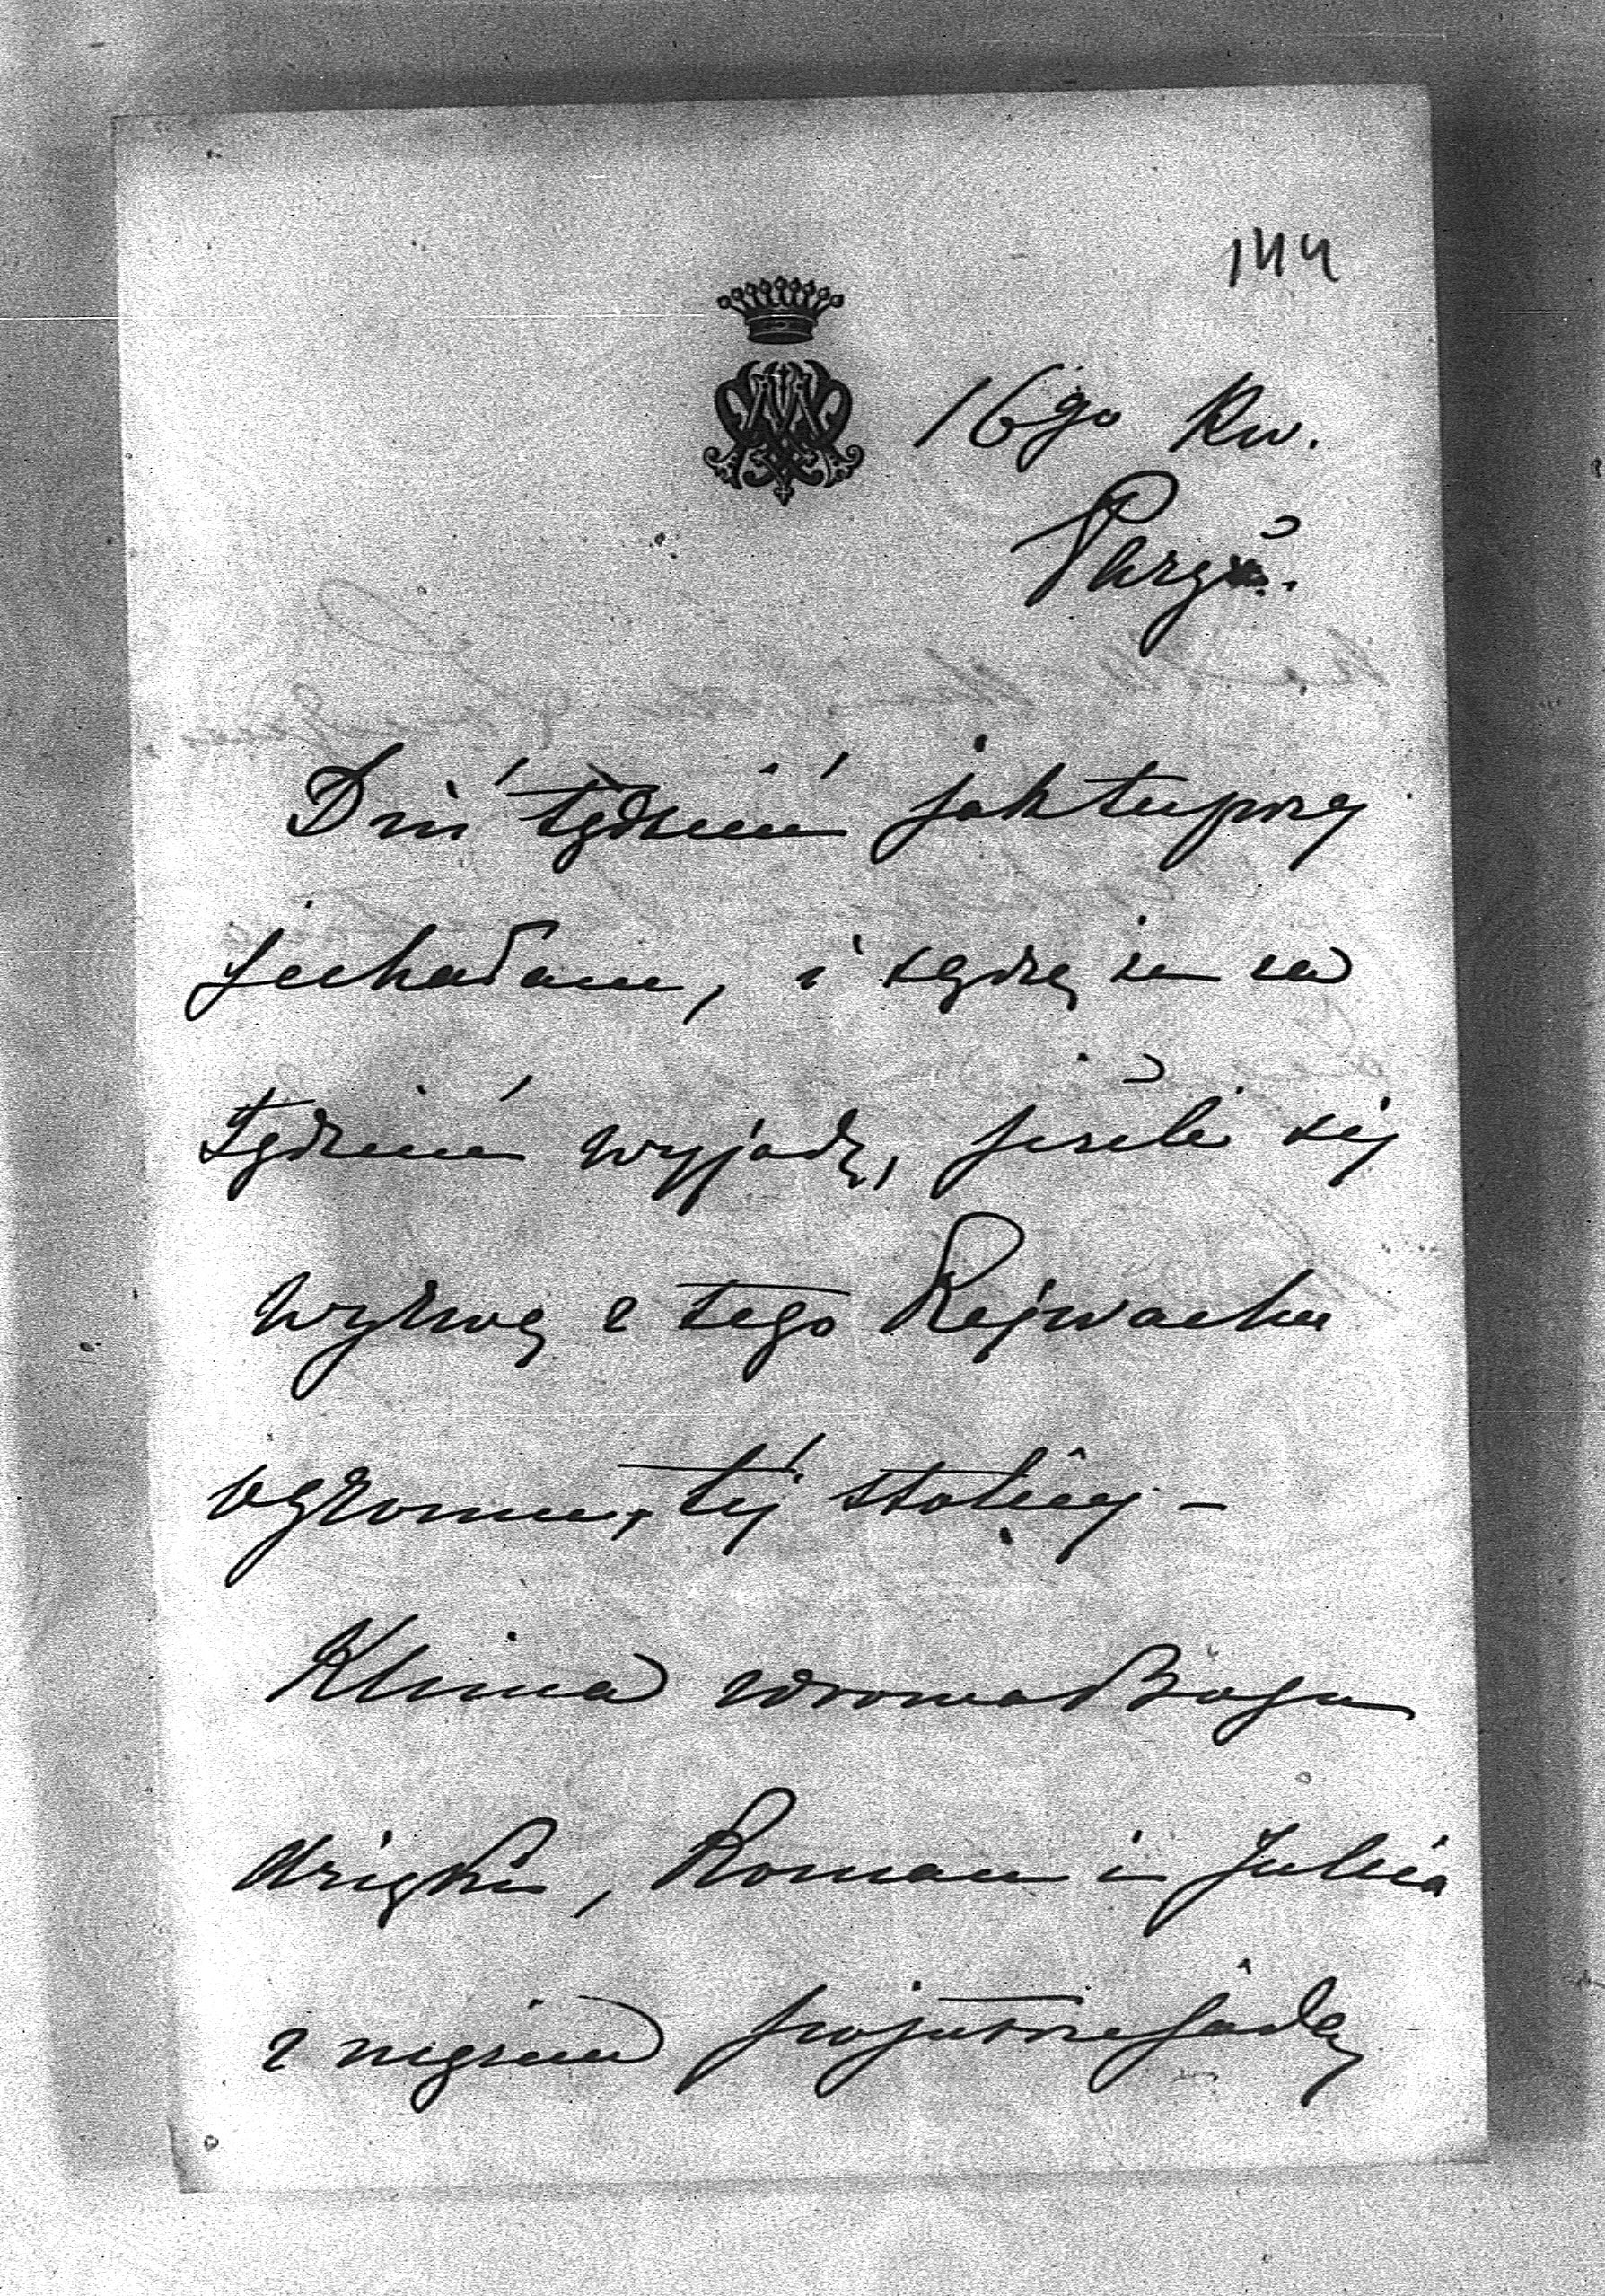 144
16go Kw.
Paryż.
Dziś tydzień jak tu przy
jechałam, i sądzę że za
tydzień wyjadę, jeżeli się
wyrwę z tego Rejwachu
ogromn. tej stolicy -
Klima zdrowa Bogu
dzięki, Roman i Julia
z mężem pojutrze jadą